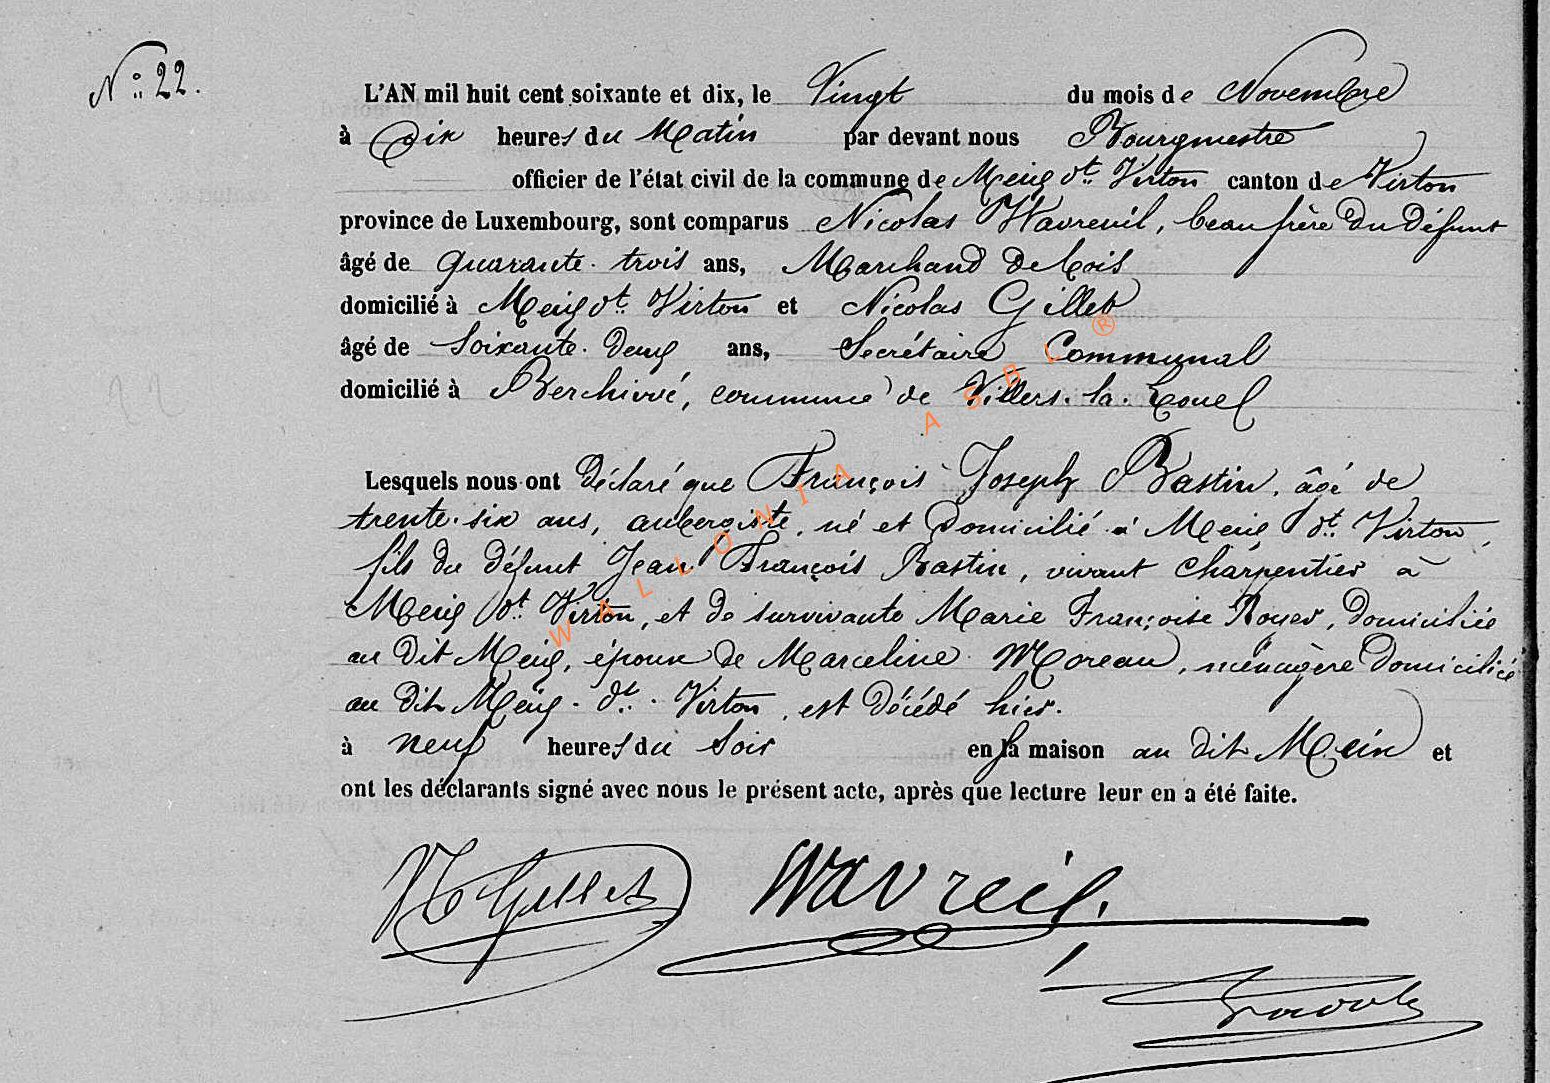 N° 22.
L'AN mil huit cent soixante et dix, le Vingt du mois de Novembre
à Dix heures du Matin par devant nous Bourgmestre
officier de l'état civil de la commune de Meix dt Virton canton de Virton
province de Luxembourg, sont comparus Nicolas Wavreuil, beau frère du défunt
âgé de quarante-trois ans, Marchand de bois
domicilié à Meix dt Virton et Nicolas Gillet
âgé de Soixante-deux ans, Secrétaire Communal
domicilié à Berchivé, commune de Villers-la-Loue
Lesquels nous ont déclaré que François Joseph Bastin, âgé de
trente-six ans, aubergiste, né et domicilié à Meix dt Virton,
fils du défunt Jean François Bastin, vivant charpentier à
Meix dt Virton, et de survivante Marie Françoise Royer, domiciliée
au dit Meix, époux de Marceline Moreau, ménagère domiciliée
au dit Meix-dt-Virton, est décédé hier.
à neuf heures du Soir en sa maison au dit Meix et
ont les déclarants signé avec nous le présent acte, après que lecture leur en a été faite.
N Gillet Wavreil.
WALLONIA ASBL ®
22